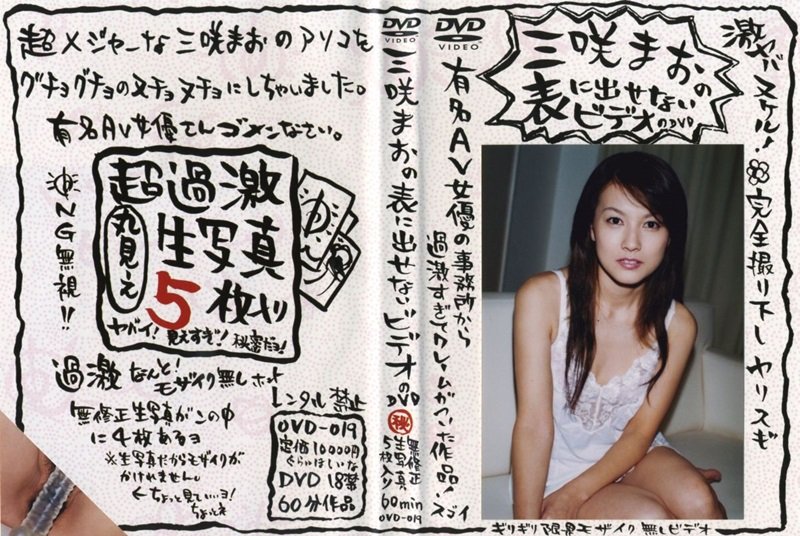 超メジャーな三咲まおのアソコを
グチョグチョのヌチョヌチョにしちゃいました。
有名AV女優さんゴメンなさい。
NG無視!!
超過激
丸見え
生写真
5枚入り
ヤバイ!見えすぎ!秘密だョ!
過激なんと!モザイク無しホット
無修正生写真がこの中
に4枚あるヨ
※生写真だからモザイクが
かけれません。
ちょっと見てい…ヨ!
ちょっとネ
レンタル禁止
OVD-019
定価10000円
ぐらいほしいな
DVD 18禁
60分作品
DVD
VIDEO
三咲まおの表に出せないビデオのDVD
㊙
無修正
生写真
5枚入り
60min
OVD-019
DVD
VIDEO
有名AV女優の事務所から
過激すぎてクレームがついた作品!スゴイ
三咲まおの
表に出せない
ビデオのDVD
激ヤバヌケル!
完全撮り下しヤリスギ
ギリギリ限界モザイク無しビデオ